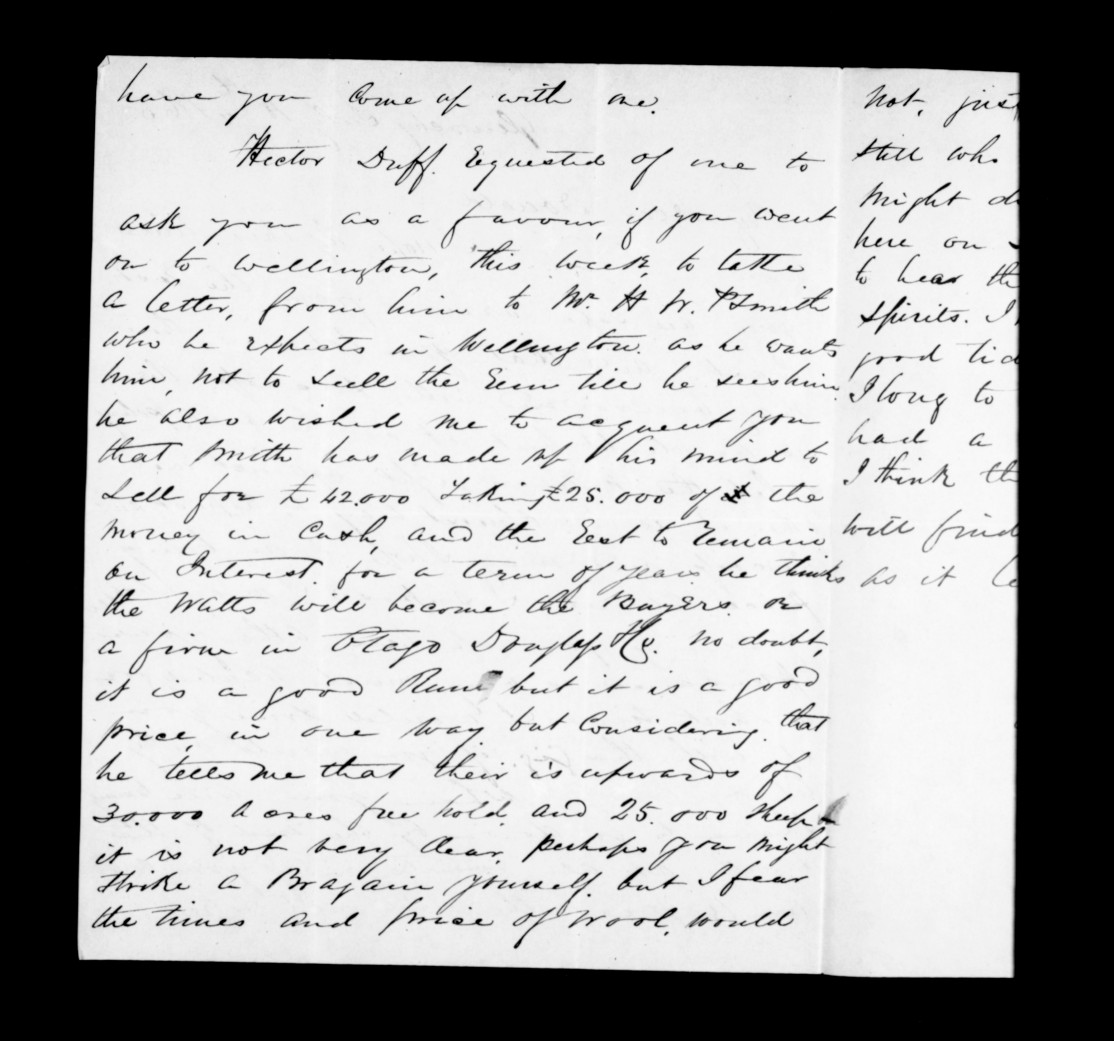 have you Come up with one.
Hector Duff. Requested of me to
ask you as a favour, if you went
on to Wellington, this week, to take
a letter, from him to Mr. H W. PSmith
who he expects in Wellington. as he wants
him, not to Sell the Run till he sees him.
he also wished me to acquent you
that Smith has made up his mind to
Sell for £42.000 Taking £25.000 of the
money in Cash, and the Rest to Remain
on Interest. for a term of years he thinks
the Watts will become the Buyers. or
a firm in Otago Douglass no doubt,
it is a good Run but it is a good
price, in one way but Considering that
he tells me that their is upwards of
30.000 Acres free hold. and 25.000 Sheep
it is not very dear, perhaps you might
strike a Bragain yourself. but I fear
the times and price of Wool, would
not, just
still who
might d
here on
to hear th
Spirits. I
good tid
I long to
had a
I think th
will find
as it